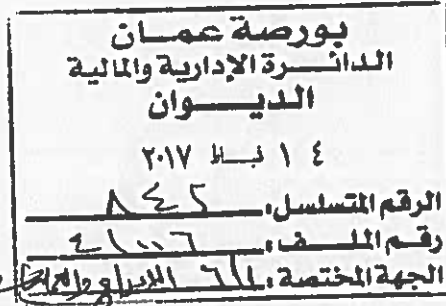 بورصة عمان
الدائرة الإدارية والمالية
الديوان
١٤ شباط ٢٠١٧
الرقم المتسلسل: ٨٤٢
رقم الملف:
الجهة المختصة: